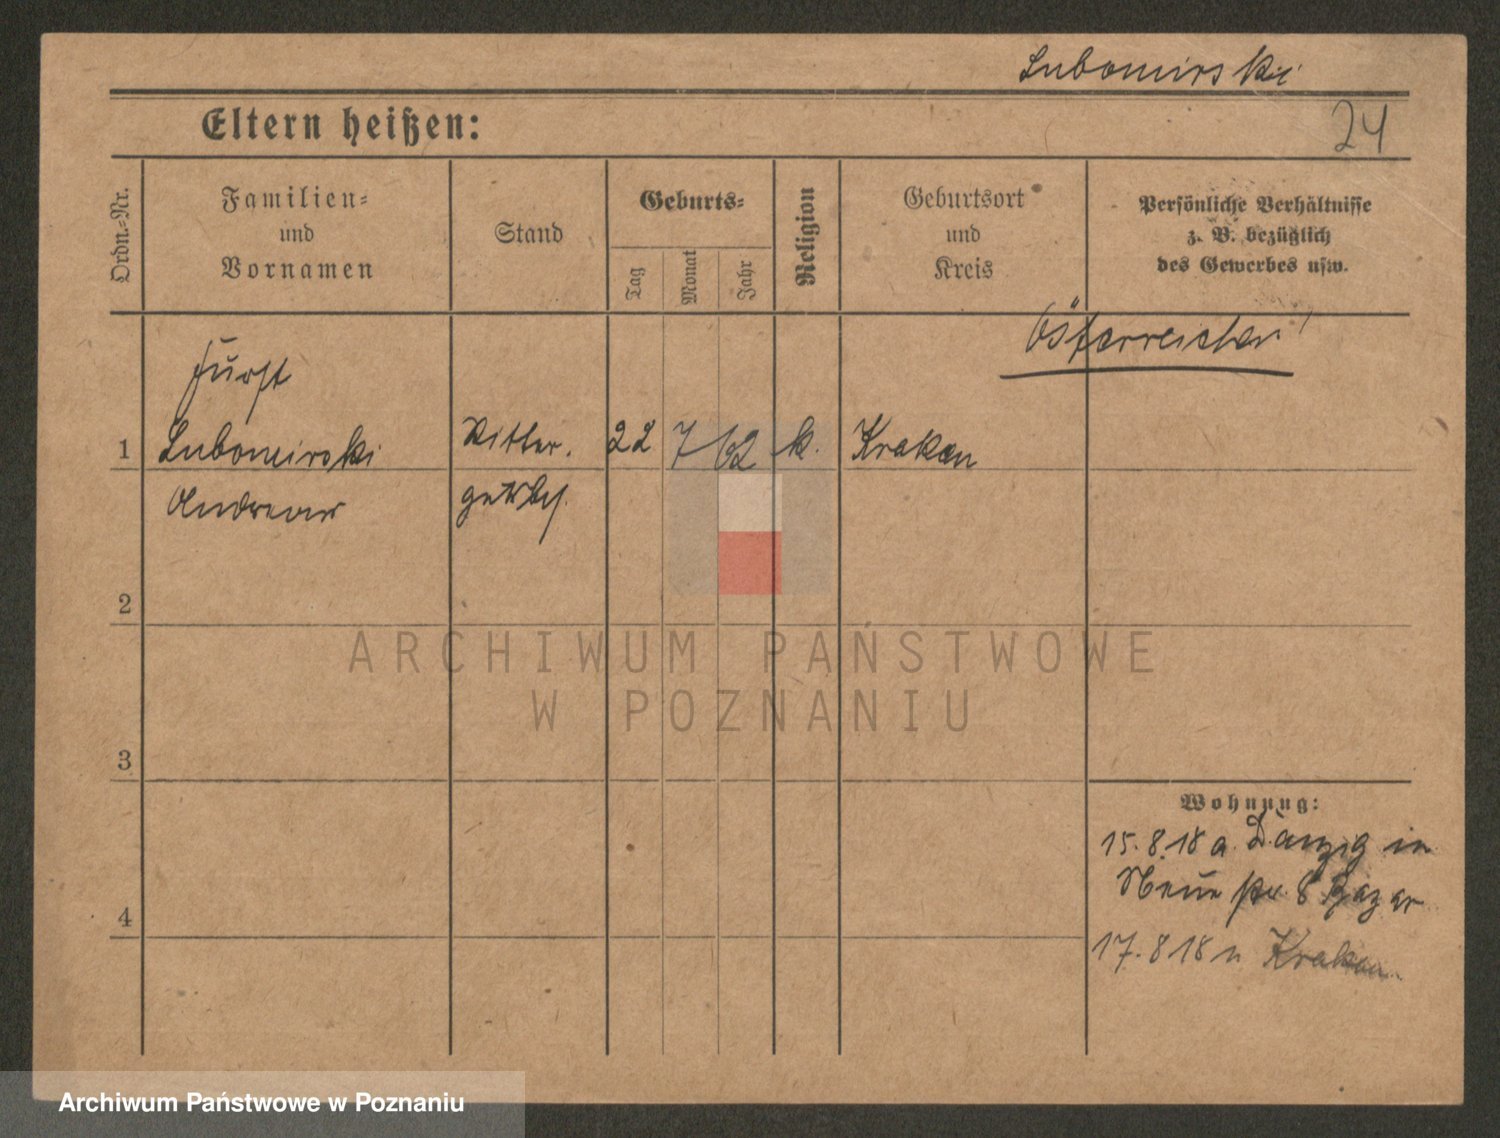 Lubomirski
Eltern heißen:
24
Ordn.-Nr.
Familien-
und
Vornamen
Stand
Geburts-
Tag
Monat
Jahr
Religion
Geburtsort
und
Kreis
Persönliche Verhältnisse
z. B. bezüglich
des Gewerbes usw.
Österreicher
Fürst
1 Lubomirski Ritter. 22 7 62 k. Krakau
Andreas gutsbes.
2
ARCHIWUM PAŃSTWOWE
W POZNANIU
3
Wohnung:
15.8.18 a. Danzig in
Neue str. 8 Bazar
4
17.8 18 n Krakau
Archiwum Państwowe w Poznaniu